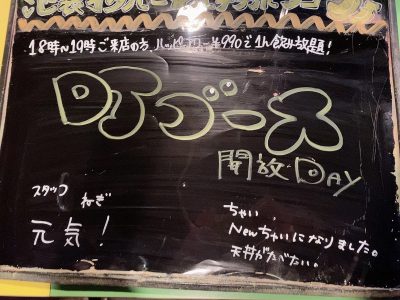 18時~19時ご来店の方、ハッピーアワー¥990で1h飲み放題!
DJブース
開放DAY
スタッフ
ねぎ
元気!
ちゃい、
Newちゃいになりました。
天丼がたべたい。